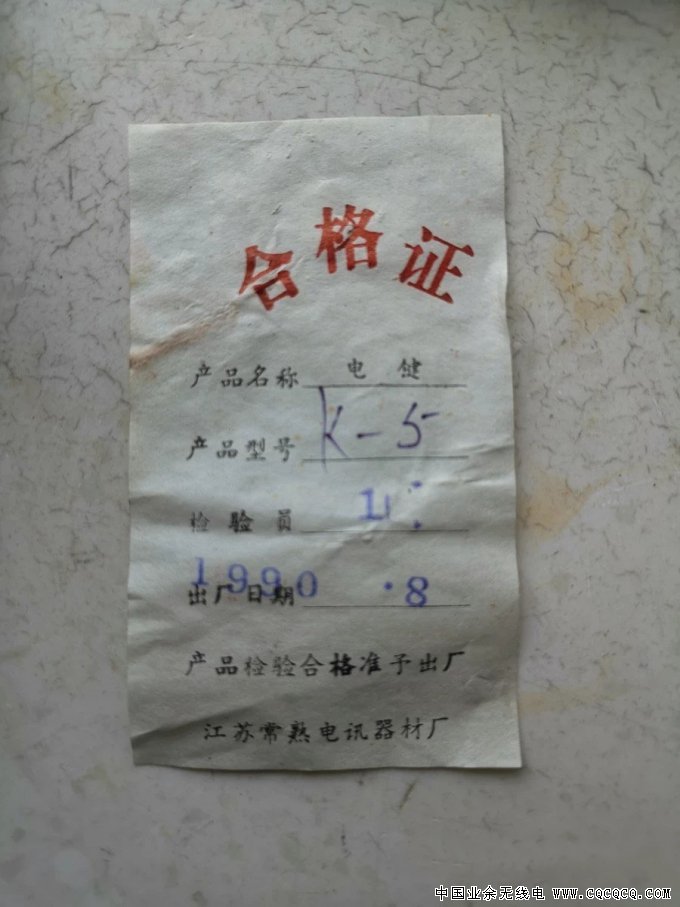 合格证
产品名称 电健
产品型号 K-5
检验员
出厂日期 1990.8
产品检验合格准予出厂
江苏常熟电讯器材厂
中国业余无线电 www.cqcqcq.com